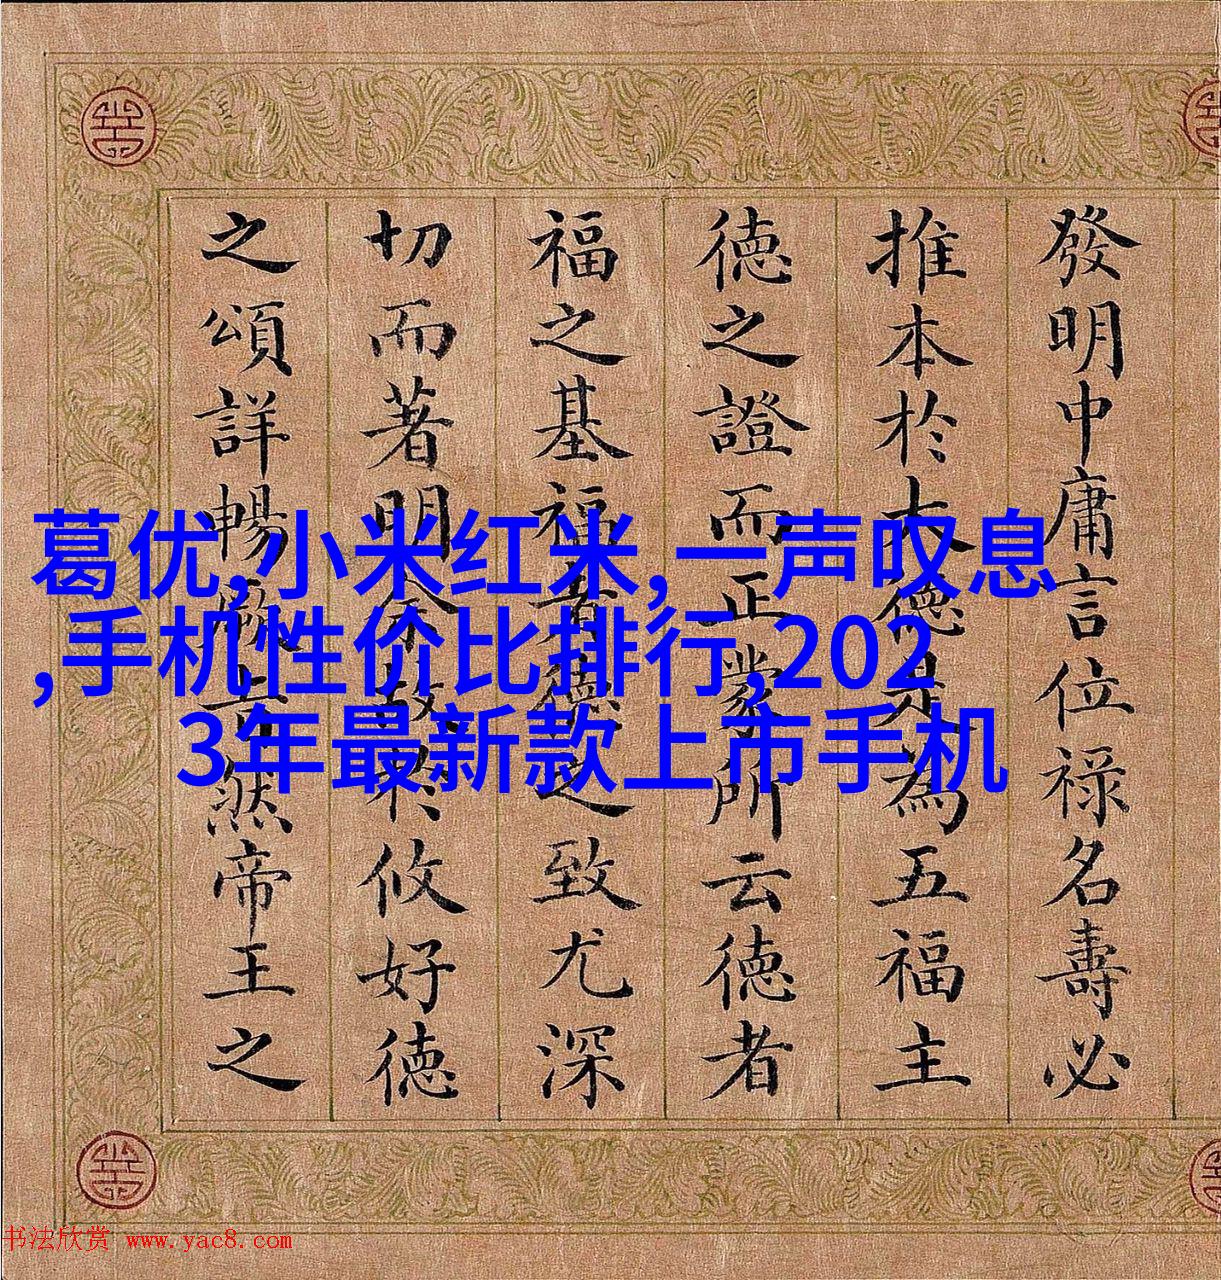 發明中庸言位祿名壽必
推本於大德是為五福主
德之證而正蒙所云德者
福之基福者德之致尤深
切而著明余故於攸好德
之頌詳暢厥旨然帝王之
葛优,小米红米,一声叹息
,手机性价比排行,202
3年最新款上市手机
书法欣赏 www.yac8.com